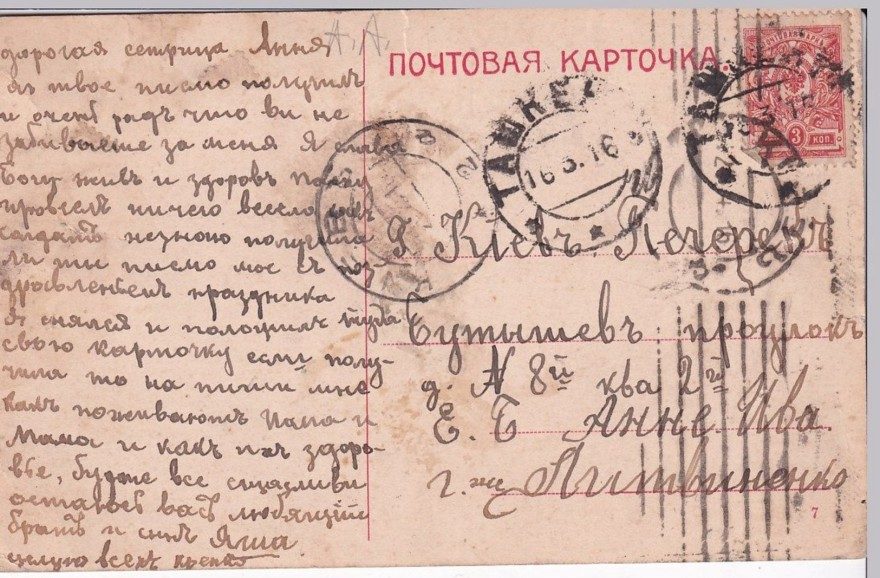 дорогая сетрица Ання
я твое писмо получил
и очень радъ что ви не
забиваете за меня я слава
Богу живъ и здоровъ пасху
провелъ ничего весело какъ
солдатъ незнаю получила
ли ти писмо мое съ поз
дровленіем праздника
я снялся и положил туда
свою карточку если полу-
чила то на пиши мне
какъ поживают Папа и
Мама и какъ ихъ здоро-
вье, будте все счасливи
остаюсь васъ любящій
братъ и синъ Яша
целую всехъ крепко
А. А.
ПОЧТОВАЯ КАРТОЧКА.
ТАШКЕНТ
16 3. 16
3 КОП
Г. Кіевъ. Печерскъ
Бутышевъ проулокъ
д. N 8й ква 2й
Е. Б Анне Ива
г. жу Литвиненко
7